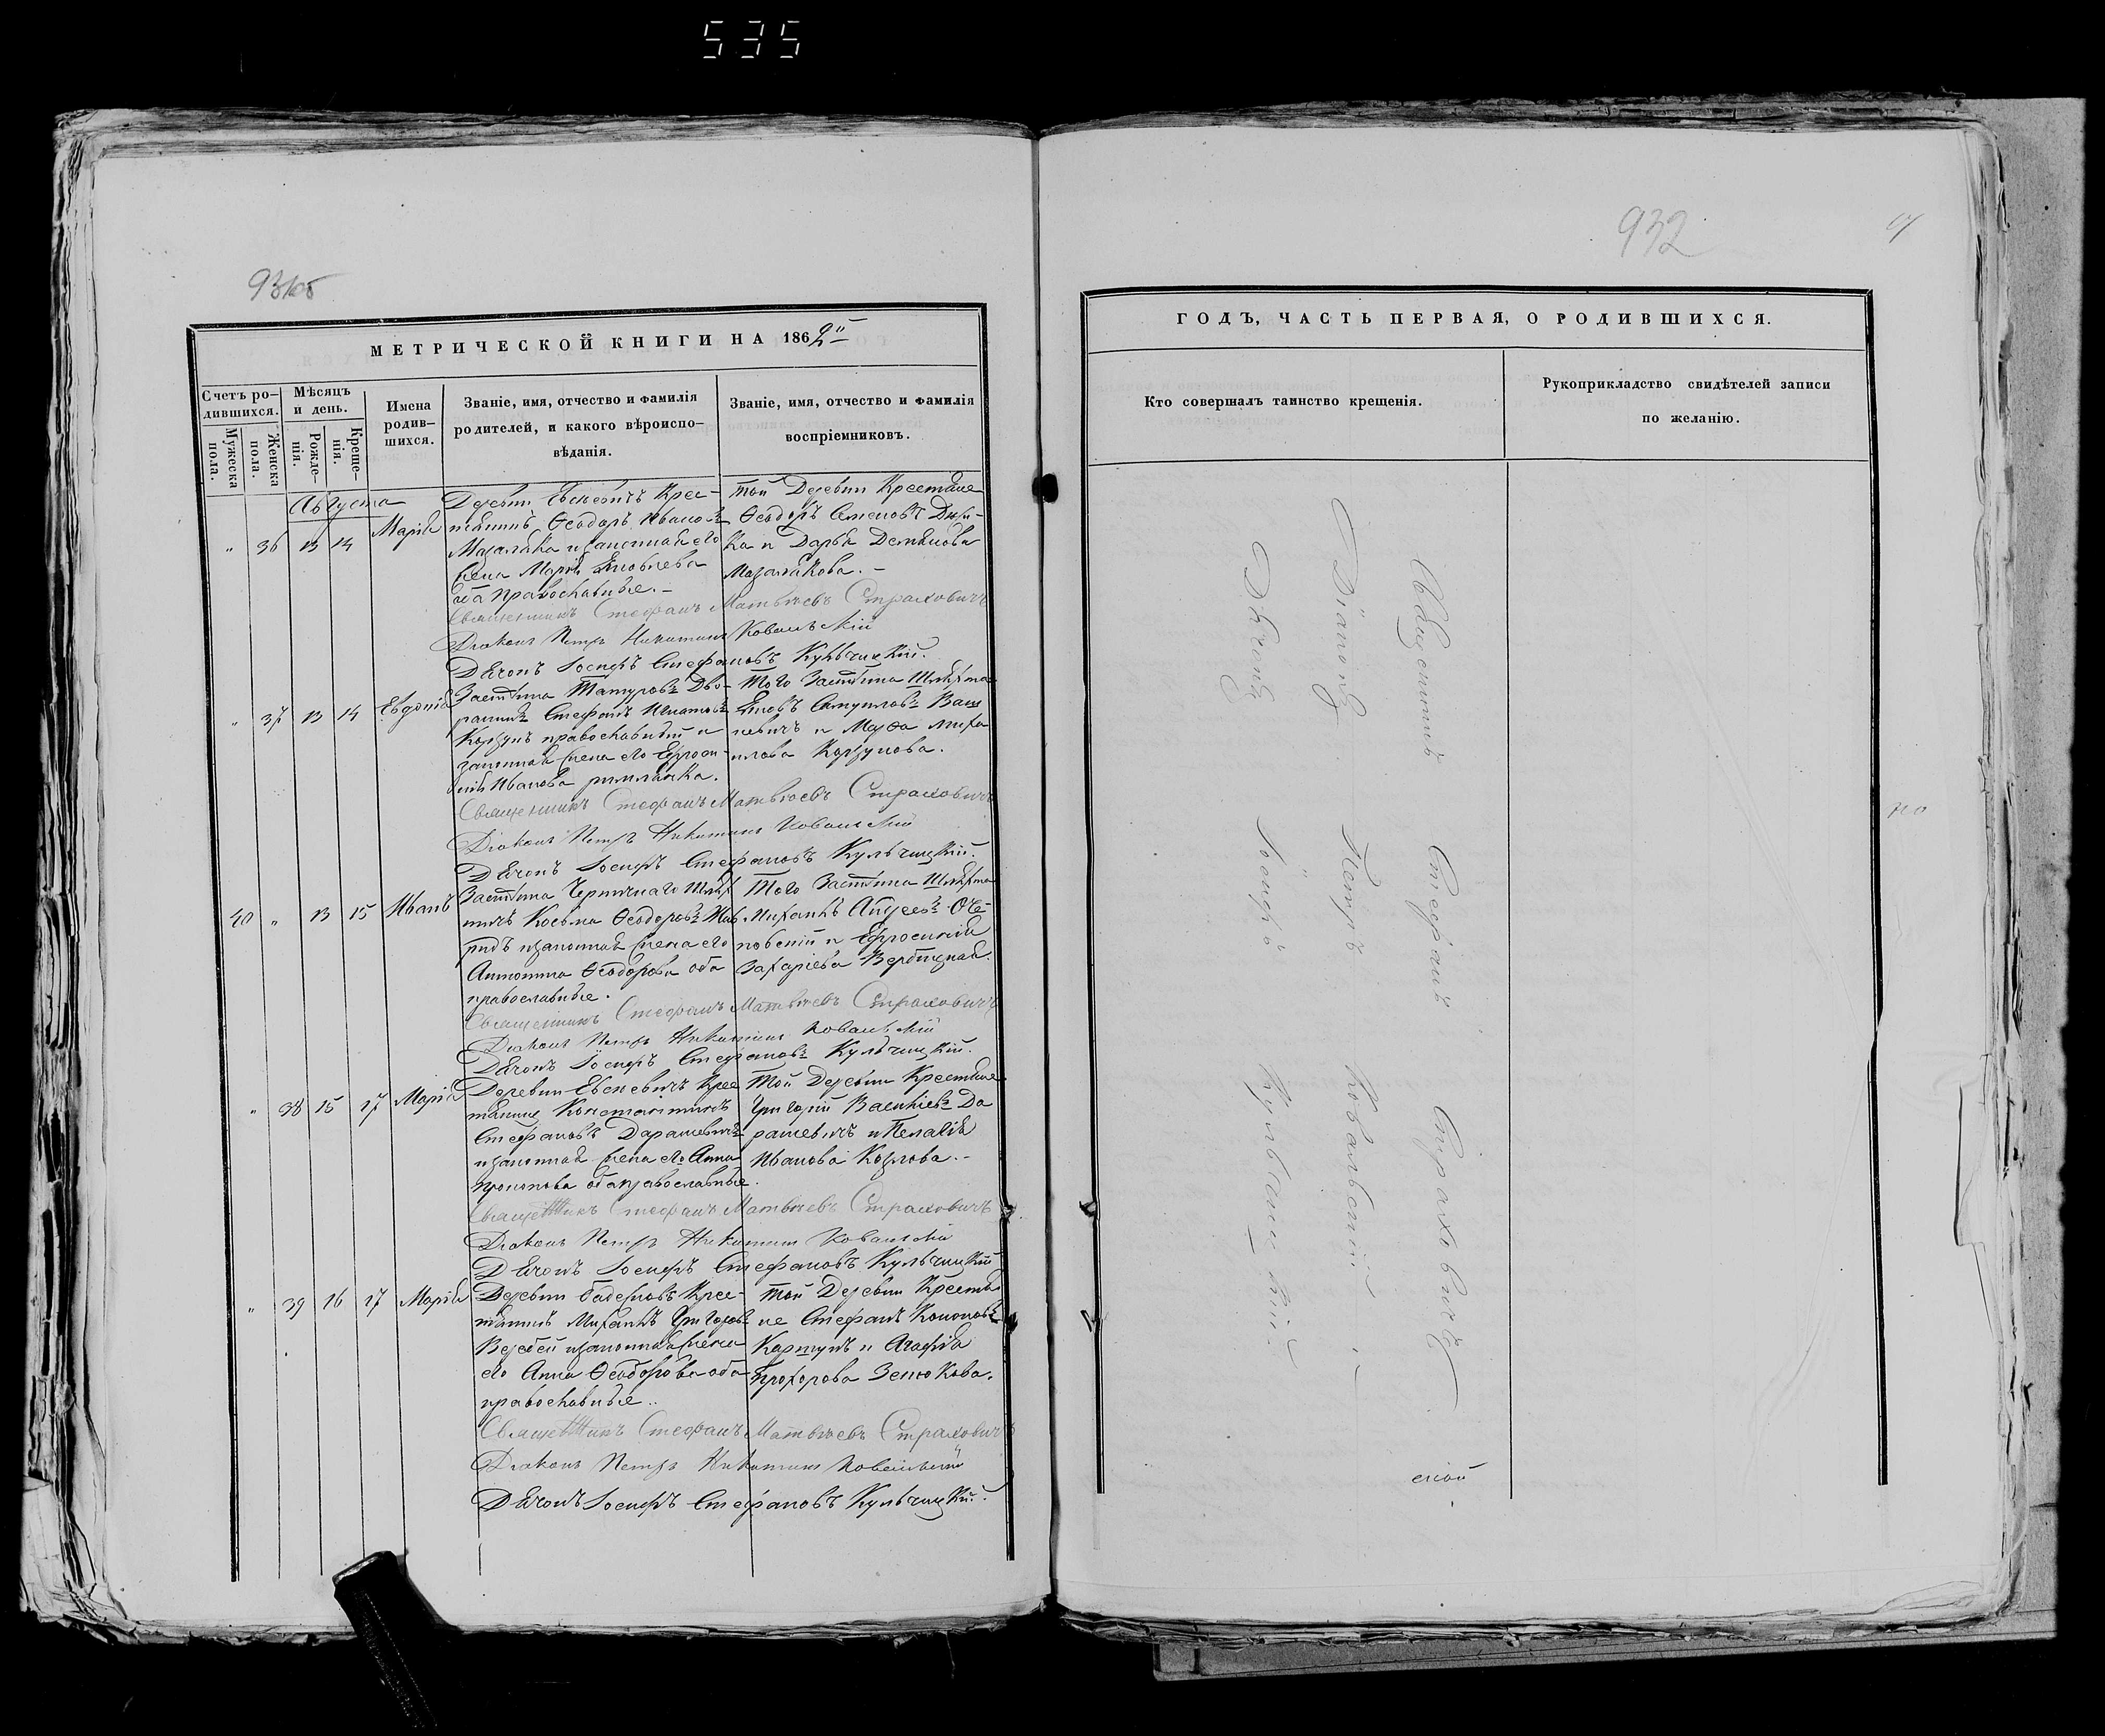 535
931об
932
МЕТРИЧЕСКОЙ КНИГИ НА 1862й
Счетъ ро-
дившихся.
Мужеска
пола.
Женска
пола.
Мѣсяцъ
и день.
Рожде-
нія.
Креще-
нія.
Имена
родив-
шихся.
Званіе, имя, отчество и фамилія
родителей, и какого вѣроиспо-
вѣданія.
Званіе, имя, отчество и фамилія
воспріемниковъ.
Августа
" 36 13 14 Марія
Деревни Евсеевичъ Крес-
тьянинъ Ѳеодоръ Ивановъ
Мазалякa и законная его
жена Марія Яковлева
оба православные.
Той Деревни Крестьяне
Ѳеодоръ Семеновъ
ка и Дарья Демьянова
Священникъ Стефанъ Матвѣевъ Страховичъ
Діаконъ Петръ Никитинъ Ковальскій
Дьячокъ Іосифъ Стефановъ Кульчицкій.
" 37 13 14 Евдокія
Застѣнка Татуровъ Дво-
рянинъ Стефанъ Игнатовъ
Корзунъ православный и
законная жена его Ефроси-
нія Иванова римлянка.
Того Застѣнка Шляхта
Яковъ Самуиловъ Ваш
кевичъ и Марѳа Миха
илова Корзунова.
Священникъ Стефанъ Матвѣевъ Страховичъ
Діаконъ Петръ Никитинъ Ковальскій
Дьячокъ Іосифъ Стефановъ Кульчицкій.
40 " 13 15 Иванъ
Застѣнка Черничнаго Шлях
тичъ Косьма Ѳеодоровъ
законная жена его
Антонина Ѳеодорова оба
православные.
Того Застѣнка Шляхта
Михаилъ
и Ефросинія
Захаріева Вербицкая.
Священникъ Стефанъ Матвѣевъ Страховичъ
Діаконъ Петръ Никитинъ Ковальскій
Дьячокъ Іосифъ Стефановъ Кульчицкій.
" 38 15 17 Марія
Деревни Евсеевичъ Крес
тьянинъ Константинъ
Стефановъ Дарашевичъ
и законная жена его Анна
Прокопова оба православные.
Той Деревни Крестьяне
Григорій Васильевъ Да
рашевичъ и Пелагія
Иванова Козлова.
Священникъ Стефанъ Матвѣевъ Страховичъ
Діаконъ Петръ Никитинъ Ковальскій
Дьячокъ Іосифъ Стефановъ Кульчицкій
" 39 16 17 Марія
Деревни Крес-
тьянинъ Михаилъ Григоровъ
Веребей и законная жена
его Анна Ѳеодорова оба
православные.
Той Деревни Крестья
не Стефанъ Кононовъ
Картунъ и Агафія
Прохорова Зенюкова.
Священникъ Стефанъ Матвѣевъ Страховичъ
Діаконъ Петръ Никитинъ Ковальскій
Дьячокъ Іосифъ Стефановъ Кульчицкій.
ГОДЪ, ЧАСТЬ ПЕРВАЯ, О РОДИВШИХСЯ.
Кто совершалъ таинство крещенія.
Рукоприкладство свидѣтелей записи
по желанію.
Священникъ Стефанъ Страховичъ
Діаконъ Петръ Ковальскій
Дьячокъ Іосифъ Кульчицкій